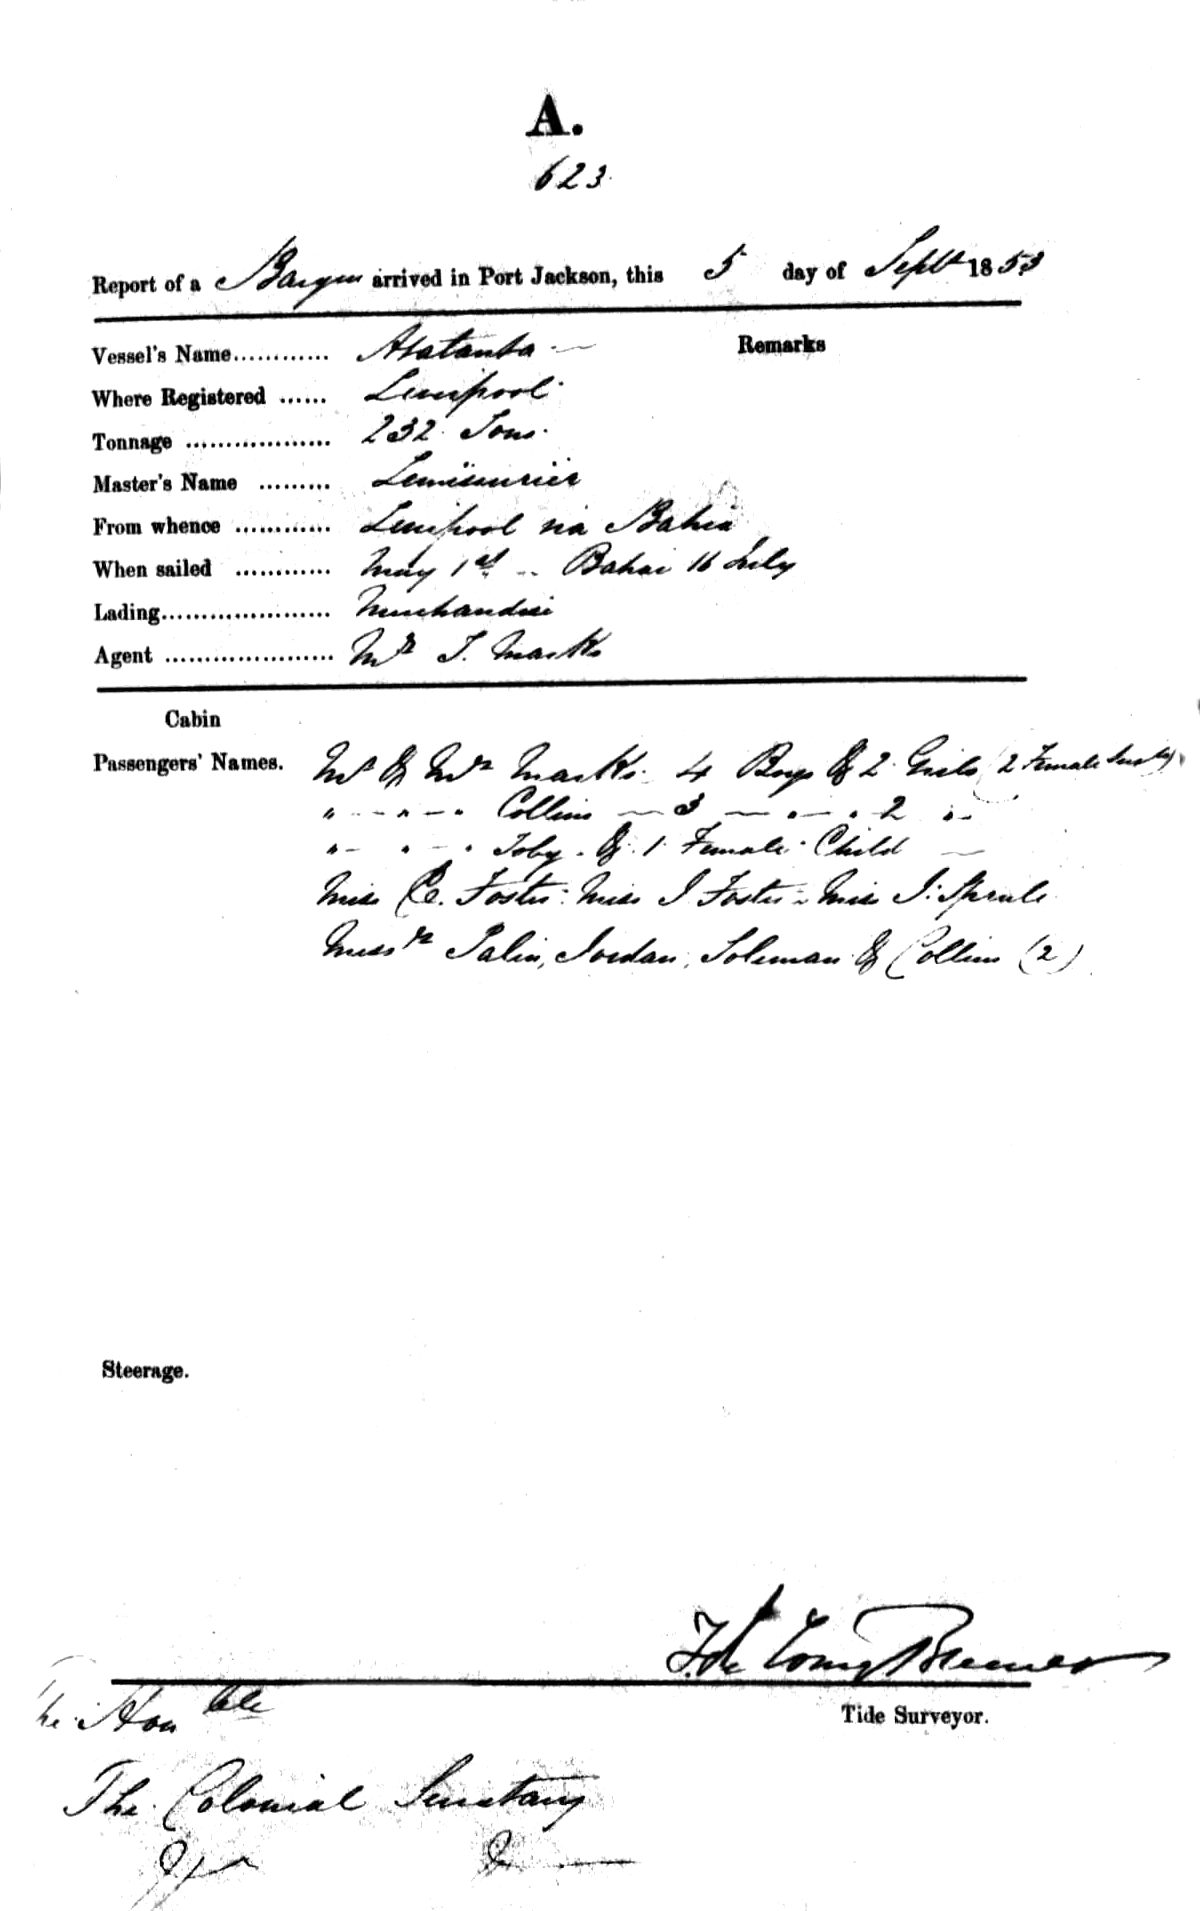 A.
623
Report of a Barque arrived in Port Jackson, this 5 day of Septbr 1853
Vessel's Name............ Atatanta
Remarks
Where Registered ...... Liverpool
Tonnage .................. 232 Tons
Master's Name ......... Lemisurier
From whence ............ Liverpool via Bahia
When sailed ............ May 1st .. Bahai 16 July
Lading..................... Merchandise
Agent ..................... Mr Marks
Cabin
Passengers' Names. Mr & Mrs Marks. 4 Boys & 2 Girls (2 Female
" — " — " Collins — 3 — " — " 2 " —
" — " — " Toby & 1 Female Child —
Miss E. Foster Miss J Foster Miss J.
Messrs Palin, Jordan, Soloman & Collins (2)
Steerage.
Tide Surveyor.
The Honble
The Colonial Secretary